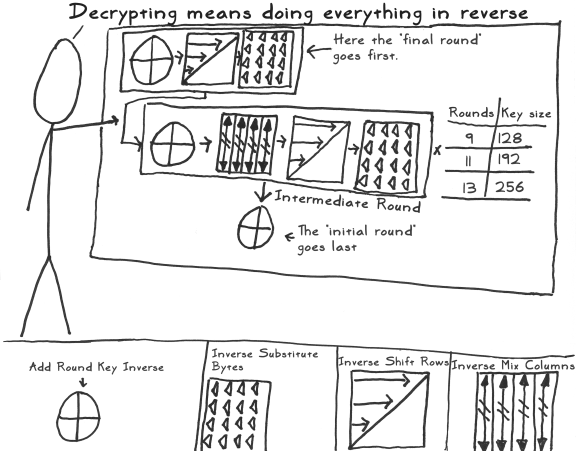 Decrypting means doing everything in reverse
Here the 'final round'
goes first.
Rounds Key size
9 128
11 192
13 256
x
Intermediate Round
The 'initial round'
goes last
Add Round Key Inverse
Inverse Substitute
Bytes
Inverse Shift Rows
Inverse Mix Columns